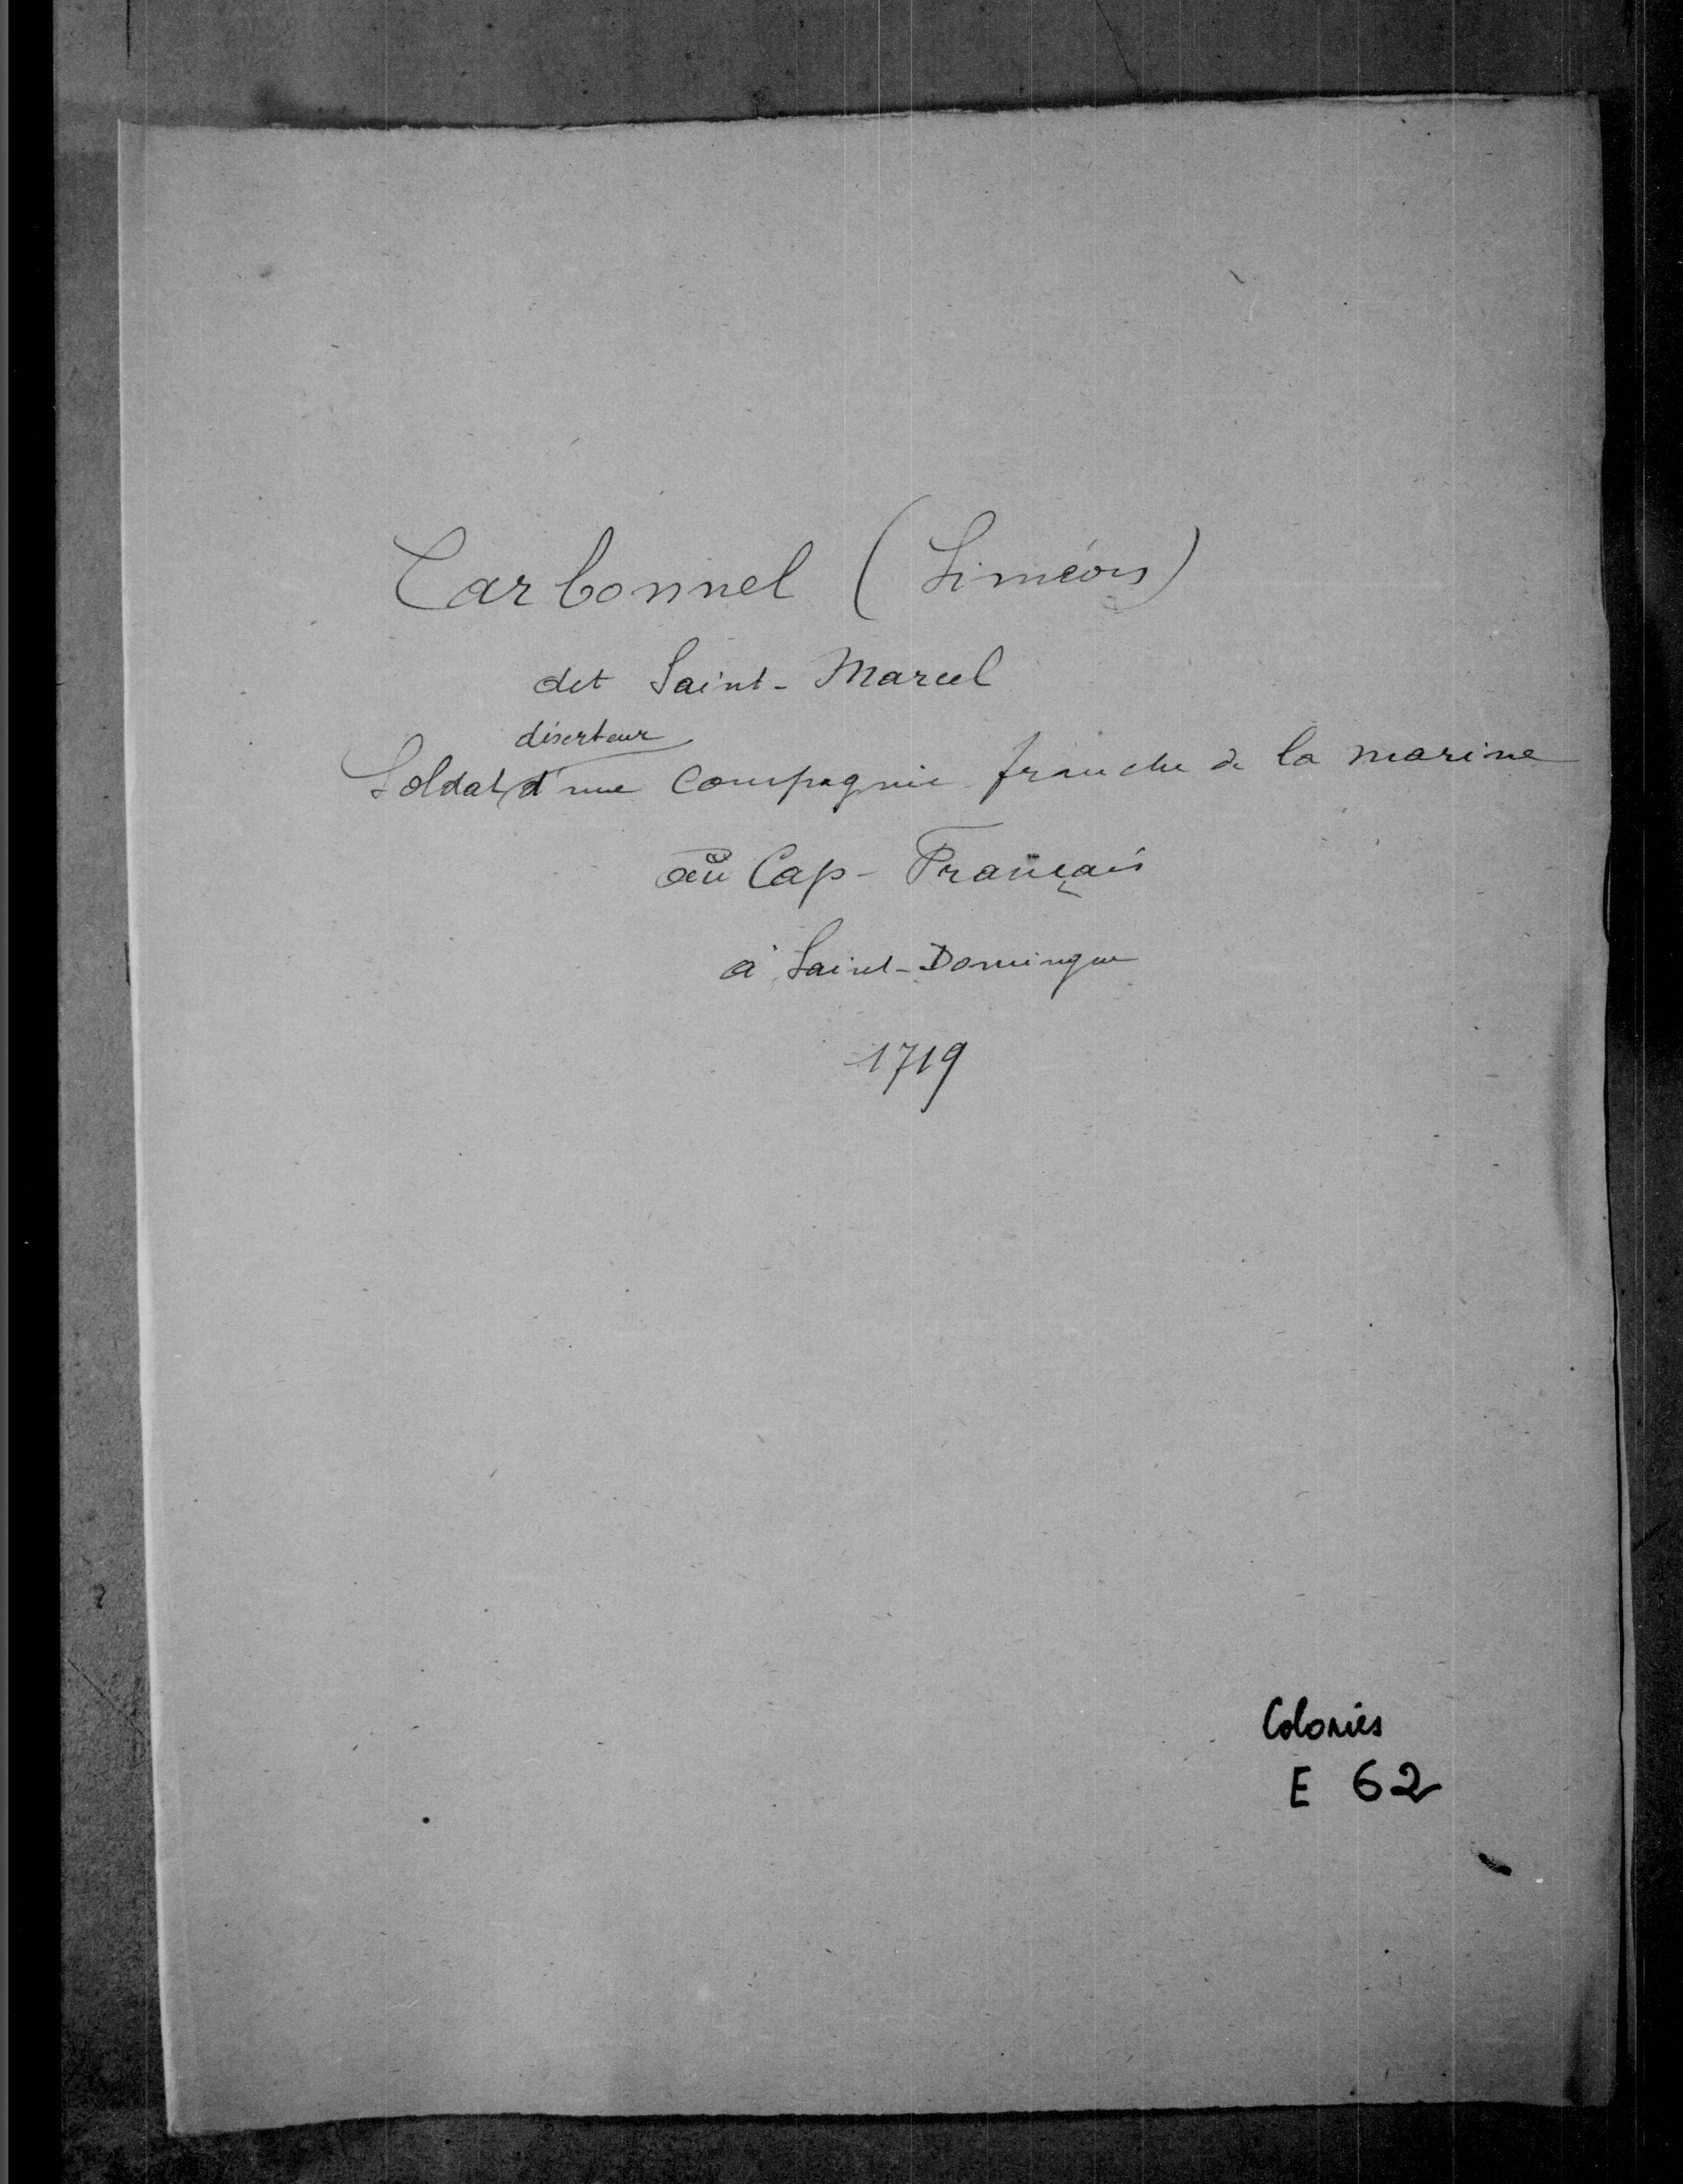 Carbonnel (Siméon)
dit Saint-Marcel
déserteur
Soldat d'une Compagnie franche de la marine
au Cap-Français
à Saint-Domingue
1719
Colonies
E 62